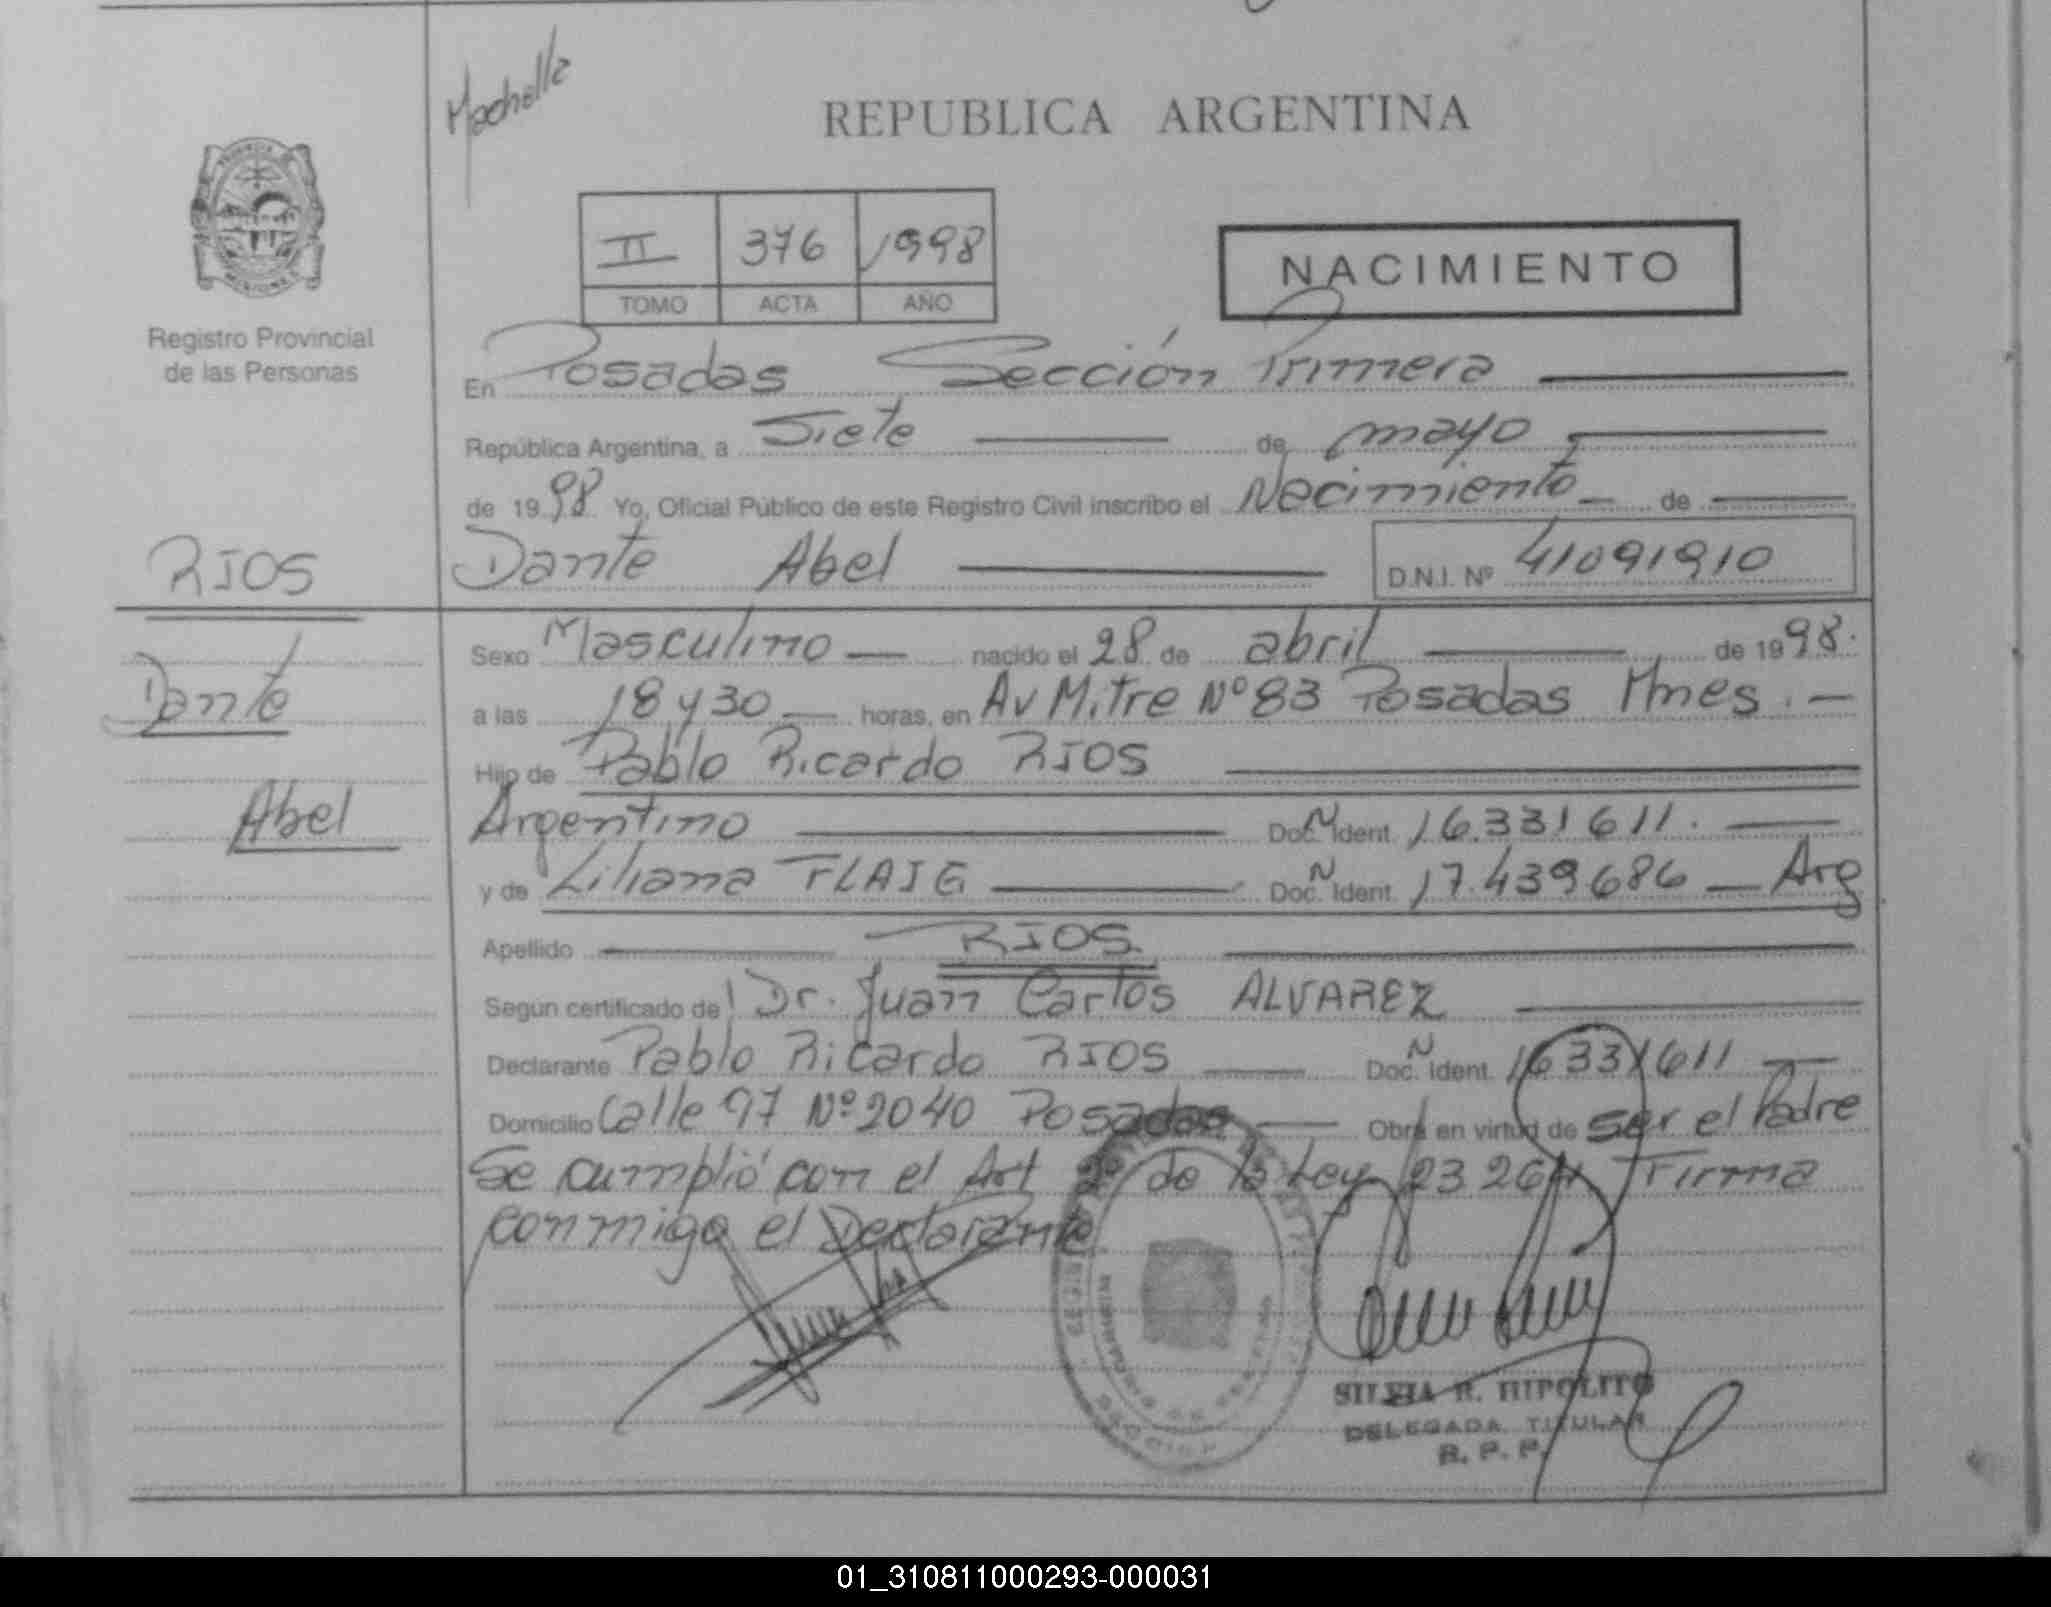 Machella
REPUBLICA ARGENTINA
II 376 1998
TOMO ACTA AÑO
NACIMIENTO
Registro Provincial
de las Personas
En Posadas Sección Primera
República Argentina, a Siete de mayo
de 1998 Yo, Oficial Público de este Registro Civil inscribo el Nacimiento de
RIOS
Dante Abel D.N.I. Nº 41091910
Dante
Abel
Sexo Masculino nacido el 28 de abril de 1998.
a las 18 y 30 horas, en Av Mitre Nº 83 Posadas Mnes.
Hijo de Pablo Ricardo RIOS
Argentino Doc. N Ident. 16.331611.
y de Liliana FLAIG Doc. N Ident. 17.439686 Arg
Apellido RIOS
Según certificado de Dr. Juan Carlos ALVAREZ
Declarante Pablo Ricardo RIOS Doc. N Ident. 16331611
Domicilio Calle 97 Nº 2040 Posadas Obra en virtud de ser el Padre
Se cumplió con el Art 2º de la Ley 23264 Firma
conmigo el Declarante
SILVIA R. HIPOLITO
DELEGADA TITULAR
R. P. P.
01_310811000293-000031